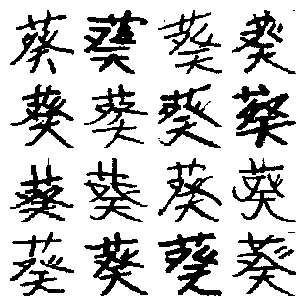 葵葵葵葵
葵葵葵葵
葵葵葵葵
葵葵葵葵